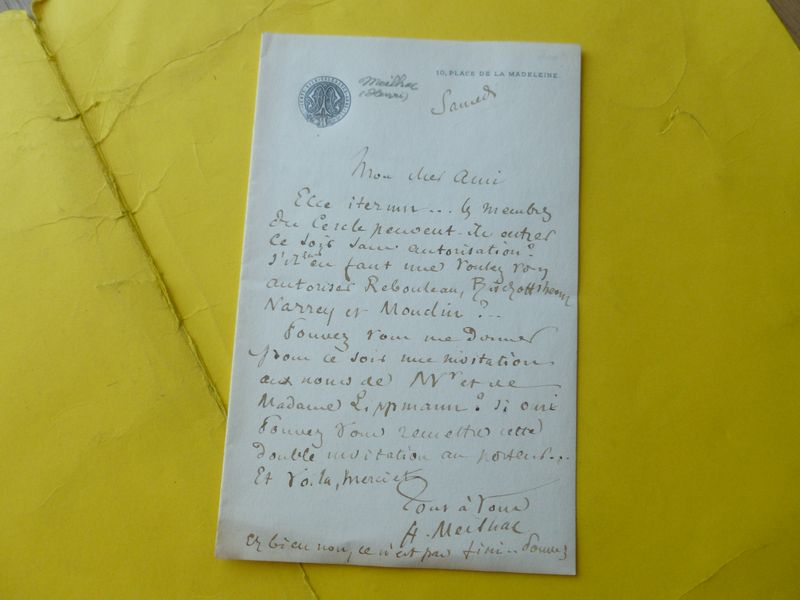 10, PLACE DE LA MADELEINE.
Meilhac
(Henri)
Samedi
Mon cher Ami
Ecce iterum... les membres
du Cercle peuvent-ils entrer
ce soir sans autorisation?
S'il en faut une voulez vous
autoriser Rebouleau, Bischoffsheim
Narrey et Moudin?...
Pouvez vous me donner
pour ce soir une invitation
aux noms de Mr et de
Madame Lippmann? Si oui
Pouvez vous remettre cette
double invitation au porteur...
Et voilà, merci et
Tout à Vous
H. Meilhac
Eh bien non, ce n'est pas fini.. Pouvez